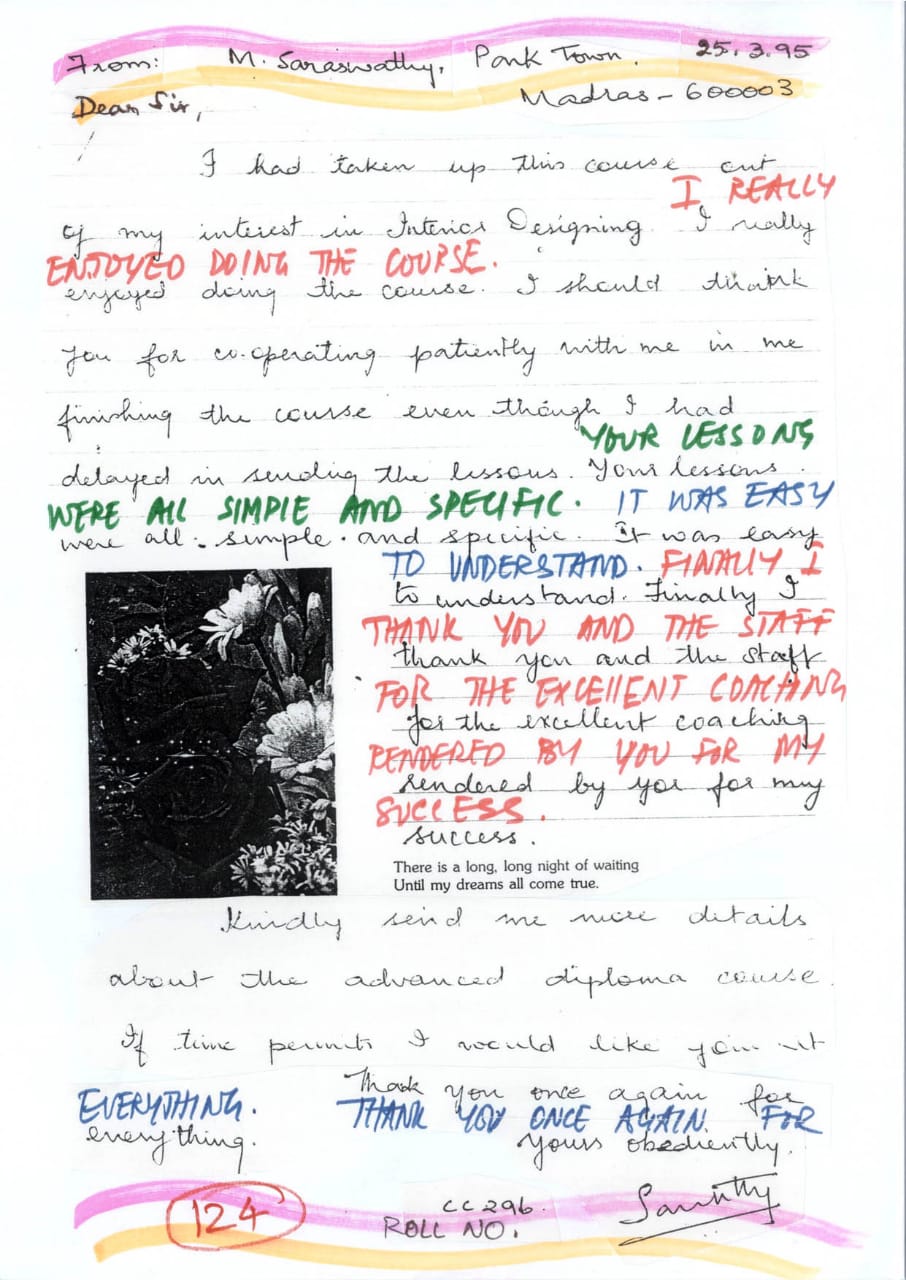 From: M. Saraswathy, Park Town. 25.3.95
Dear Sir, Madras - 600003
I had taken up this course out
I REALLY
of my interest in Interior Designing. I really
ENJOYED DOING THE COURSE.
enjoyed doing the course. I should thank
you for co-operating patiently with me in me
finishing the course even though I had
YOUR LESSONS
delayed in sending the lessons. Your lessons
WERE All SIMPlE AND SPECIFIC. IT WAS EASY
were all simple and specific. It was easy
TO UNDERSTAND. FINAllY I
to understand. Finally I
THANK YOU AND THE STAFF
thank you and the staff
FOR THE EXCEllENT COACHING
for the excellent coaching
RENDERED BY YOU FOR MY
rendered by you for my
SUCCESS.
success.
There is a long, long night of waiting
Until my dreams all come true.
Kindly send me more details
about the advanced diploma course.
If time permits I would like
Thank you once again for
EVERYTHING. THANK YOU ONCE AGAIN FOR
everything. Yours obediently.
124 CC296
ROLL NO.